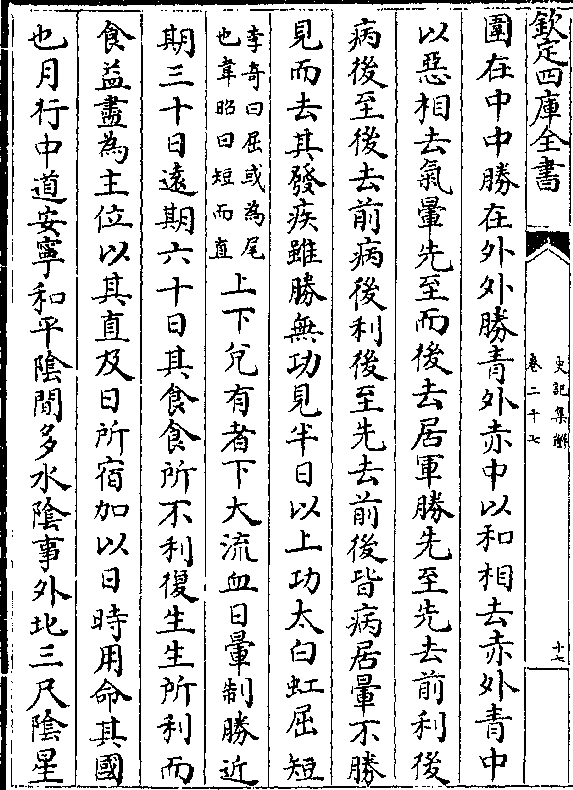 欽定四庫全書
史記集解
卷二十七
十七
圍在中中勝在外外勝青外赤中以和相去赤外青中
以惡相去氣暈先至而後去居軍勝先至先去前利後
病後至後去前病後利後至先去前後皆病居暈不勝
見而去其發疾雖勝無功見半日以上功太白虹屈短
李奇曰屈或為尾
也韋昭曰短而直
上下兌有者下大流血日暈制勝近
期三十日遠期六十日其食食所不利復生生所利而
食益盡為主位以其直及日所宿加以日時用命其國
也月行中道安寧和平陰間多水陰事外北三尺陰星